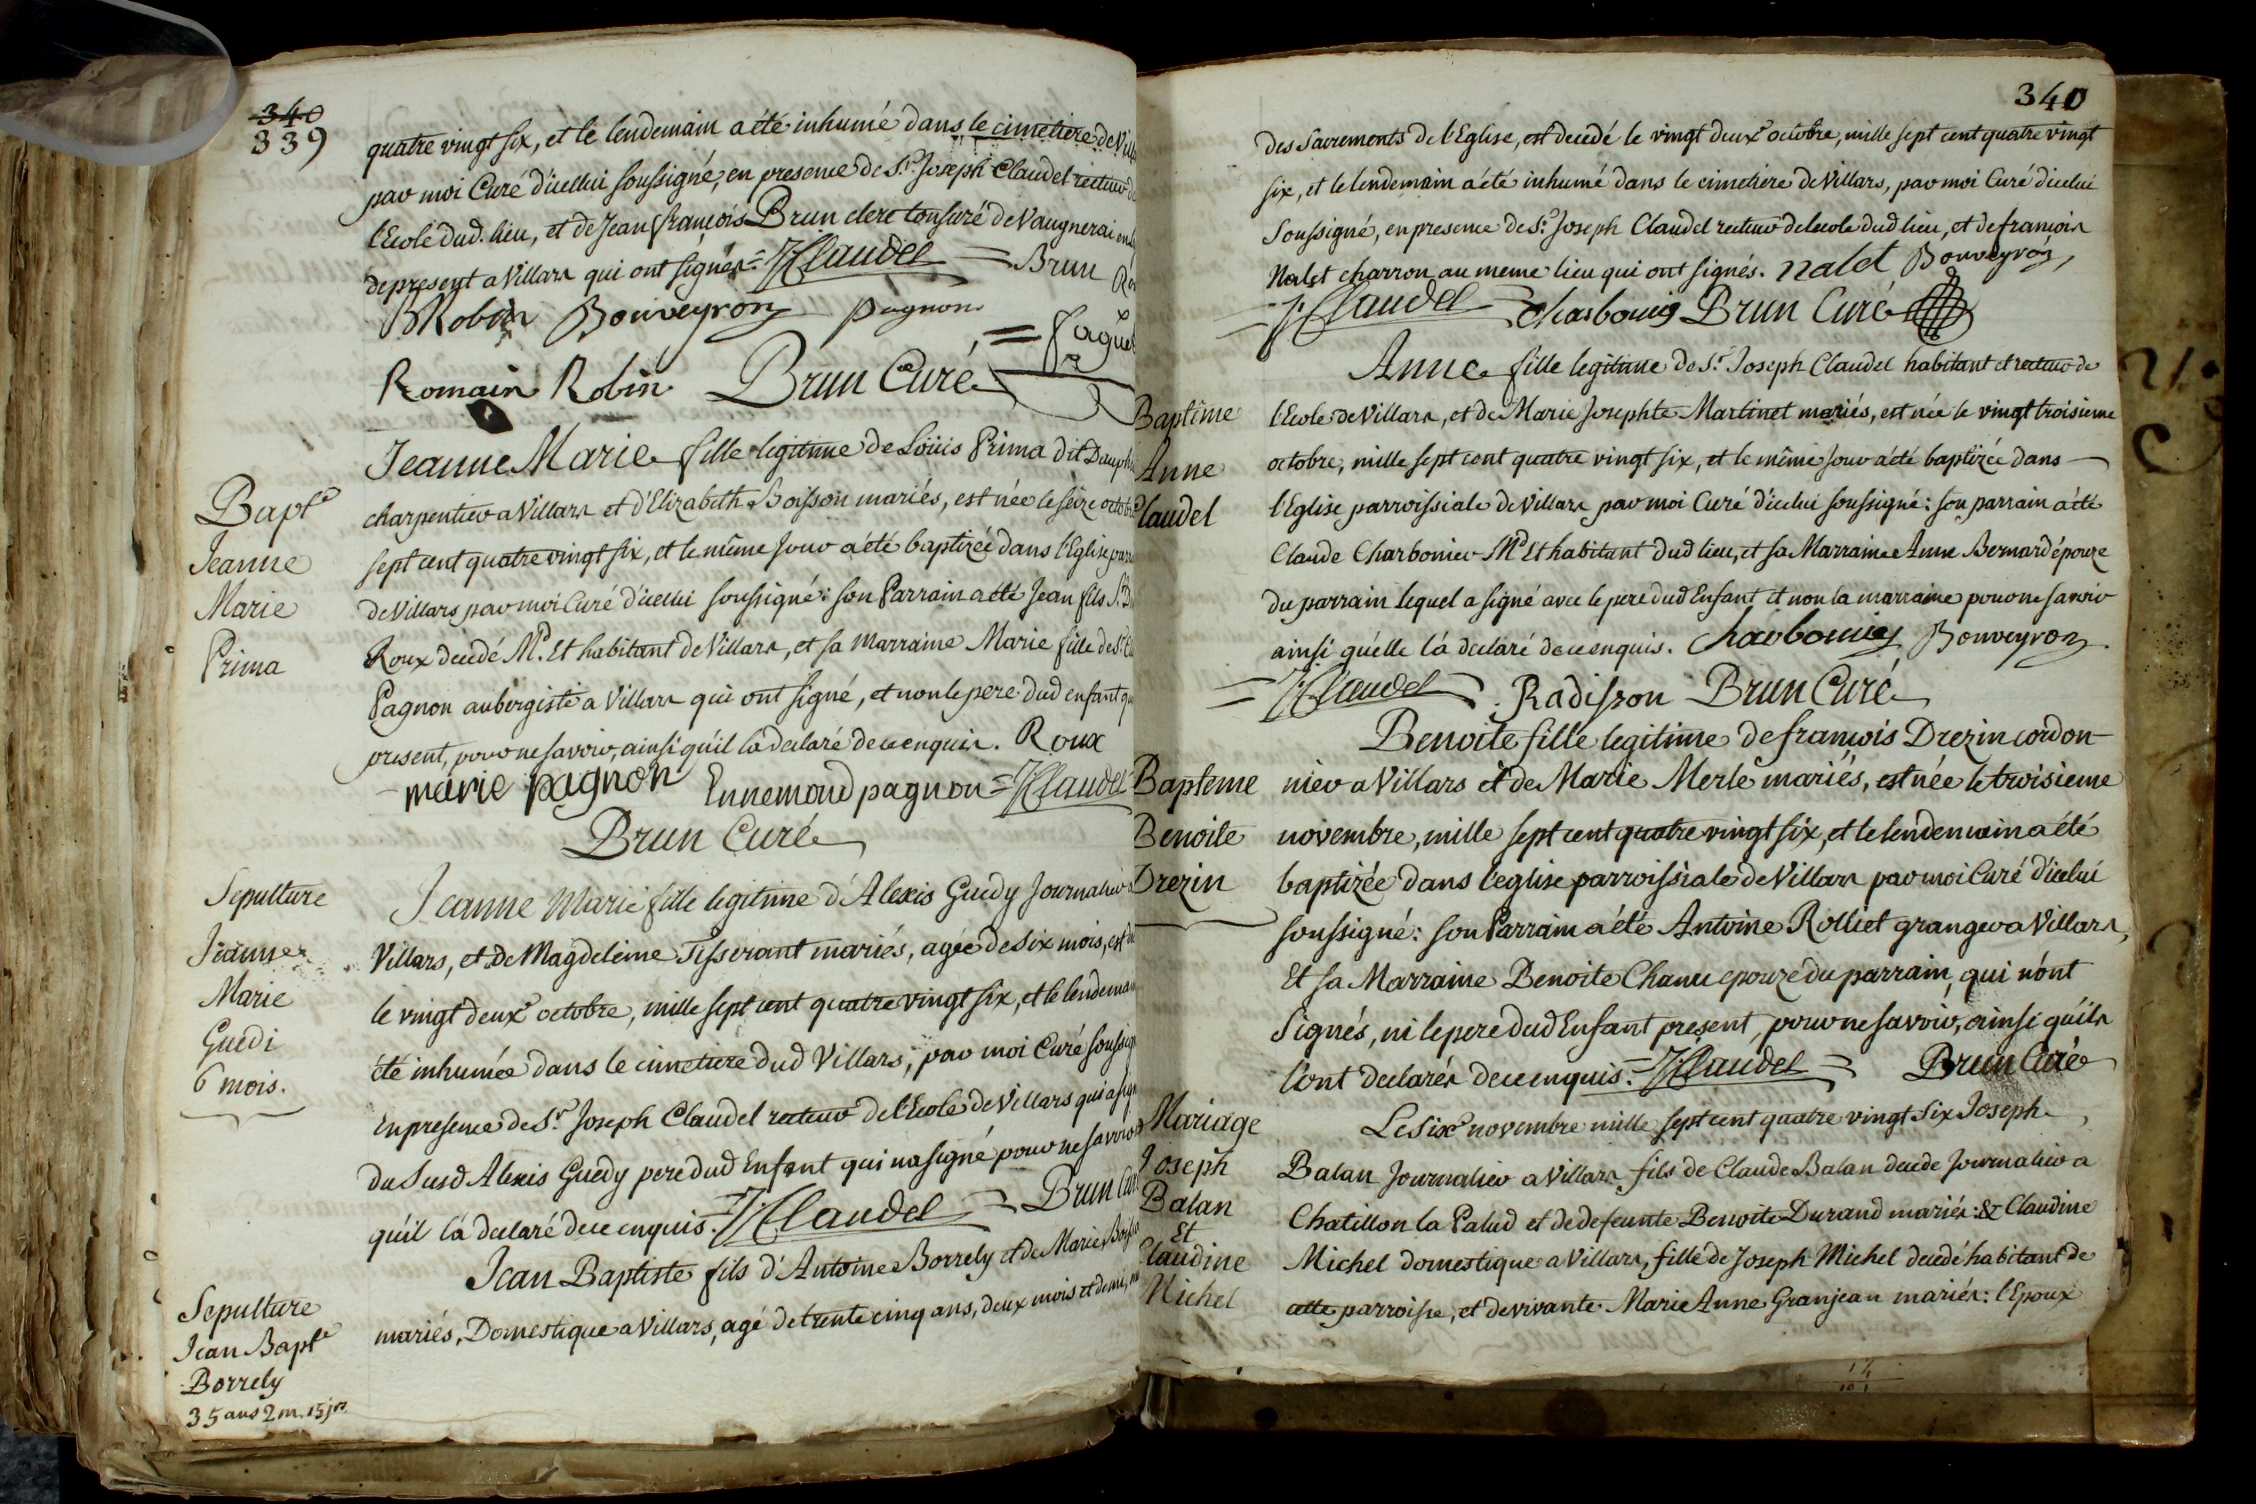 340
339
quatre vingt six, et le lendemain a été inhumé dans le cimetiere de Vill
par moi Curé d'icellui soussigné, en presence de Sr. Joseph Claudel recteur de
l'Ecole dud. lieu, et de Jean françois Brun clerc tonsuré de Vaugnerai
de present a Villars qui ont signés = J Claudel = Brun
BRobin Bouveyron pagnon
= faguet
Romain Robin Brun Curé
Bapt.e
Jeanne
Marie
Prima
Jeanne Marie fille legitime de Loüis Prima dit Dauph
charpentier a Villars et d'Elizabeth Boisson mariés, est née le seize octobre
sept cent quatre vingt six, et le même jour a été baptizée dans l'Eglise parr
de Villars par moi Curé d'icellui soussigné: son Parrain a été Jean fils S.
Roux decedé Md. Et habitant de Villars, et sa Marraine Marie fille de Sr.
Pagnon aubergiste a Villars qui ont signé, et non le pere dud enfant
present, pour ne savoir, ainsi qu'il l'a declaré de ce enquis. Roux
marie pagnon Ennemond pagnon = J Claudel
Brun Curé
Sepulture
Jeanne
Marie
Guedi
6 mois.
Jeanne Marie fille legitime d'Alexis Guedy Journalier a
Villars, et de Magdeleine Tisserant mariés, agée de six mois, est
le vingt deuxe octobre, mille sept cent quatre vingt six, et le lendemain
été inhumée dans le cimetiere dud Villars, par moi Curé soussigné
En presence de Sr. Joseph Claudel recteur de l'Ecole de Villars qui a sig
du susd Alexis Guedy pere dud Enfant qui na signé pour ne savoir
qu'il l'a declaré de ce enquis. = J Claudel = Brun Cu
Sepulture
Jean Bapt.e
Borrely
35 ans 2 m. 15 jrs
Jean Baptiste fils d'Antoine Borrely et de Marie
mariés, Domestique a Villars, agé de trente cinq ans, deux mois et demi,
340
des Sacrements de l'Eglise, est decedé le vingt deuxe octobre, mille sept cent quatre vingt
six, et le lendemain a été inhumé dans le cimetiere de Villars, par moi Curé d'icelui
Soussigné, en presence de Sr. Joseph Claudel recteur de l'ecole dud lieu, et de francois
Nalet charron au meme lieu qui ont signés. nalet Bouveyron,
= J Claudel = Brun Curé
Baptême
Anne
Claudel
Anne fille legitime de Sr. Joseph Claudel habitant et recteur de
l'Ecole de Villars, et de Marie Josephte Martinet mariés, est née le vingt troisieme
octobre, mille sept cent quatre vingt six, et le même jour a été baptizée dans
l'Eglise parroissiale de Villars par moi Curé d'icelui soussigné: son parrain a été
Claude Charbonier Md Et habitant dud lieu, et sa Marraine Anne Bernard épouze
du parrain lequel a signé avec le pere dud Enfant et non la marraine pour ne savoir
ainsi qu'elle l'a declaré de ce enquis. Bouveyron
= J Claudel = Radisson Brun Curé
Bapteme
Benoite
Drezin
Benoite fille legitime de françois Drezin cordon-
nier a Villars et de Marie Merle mariés, est née le troisieme
novembre, mille sept cent quatre vingt six, et le lendemain a été
baptizée dans l'eglise parroissiale de Villars par moi Curé d'icelui
soussigné: son Parrain a été Antoine Rolliet granger a Villars,
Et sa Marraine Benoite Chanu epouze du parrain, qui n'ont
Signés, ni le pere dud Enfant present, pour ne savoir, ainsi qu'ils
l'ont declarés de ce enquis. = J Claudel = Brun Curé
Mariage
Joseph
Balan
Et
Claudine
Michel
Le sixe novembre mille sept cent quatre vingt six Joseph
Balan Journalier a Villars fils de Claude Balan decede Journalier a
Chatillon la Palud et de defeunte Benoite Durand mariés: & Claudine
Michel domestique a Villars, fille de Joseph Michel decedé habitant de
cette parroisse, et de vivante Marie Anne Granjean mariés: l'Epoux